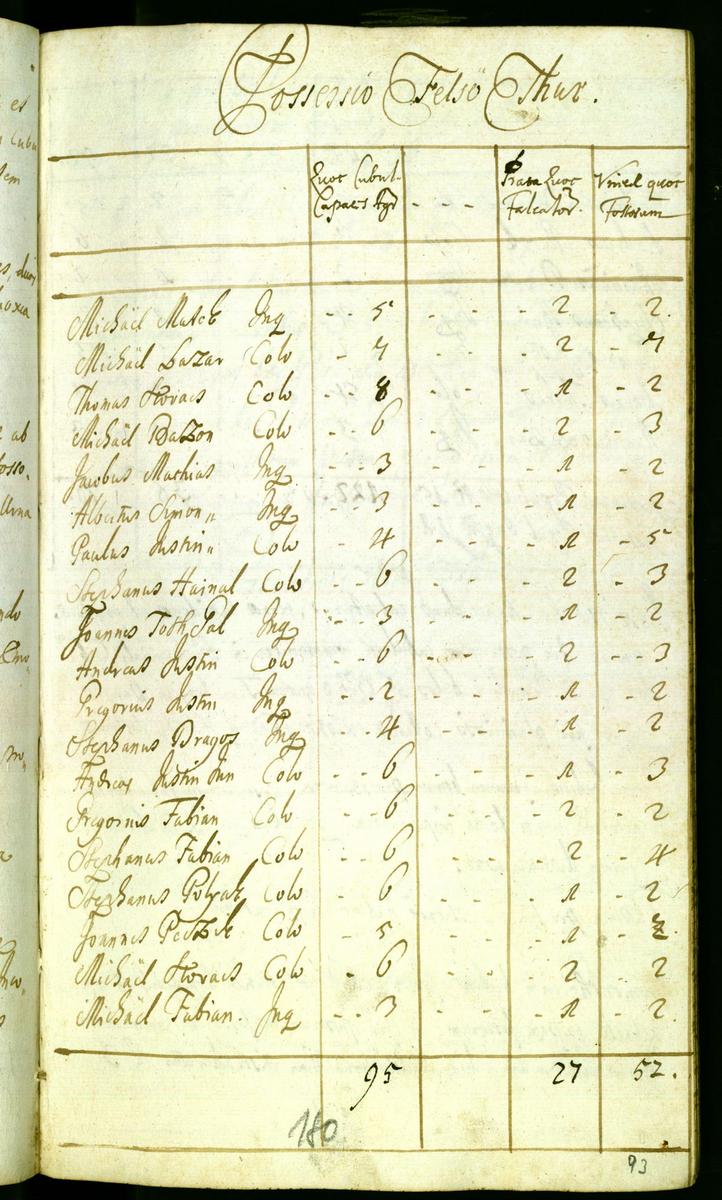 Possessio Felsö Thur.
Quot Cubul. - - - Prata Quot Vineæ quot
Capacs Agr Falcator. Fossorum
Michaël Matck Inq - - 5 - - - 2 - 2.
Michaël Lazar Colo - 7 - - - 2 - 7
Thomas Kovacs Colo - - 8 - - - 1 - 2
Michaël Bazon Colo - - 6 - - - 2 - 3
Jacobus Mathias Inq - - 3 - - - 1 - 2
Albertus Simon Inq - - 3 - - - 1 - 2
Paulus Justin Colo - - 4 - - - 1 - 5
Stephanus Hainal Colo - - 6 - - - 2 - 3
Joannes Toth Pal Inq - - 3 - - - 1 - 2
Andreas Justin Colo - - 6 - - - 2 - - 3
Gregorius Justin Inq - - 2 - - - 1 - 2
Stephanus Dragos Inq - - 4 - - - 1 - 2
Andreas Justin Jun Colo - - 6 - - - 1 - 3
Gregorius Fabian Colo - - 6 - - - 2 - 2
Stephanus Fabian Colo - - 6 - - - 2 - 4
Stephanus Polyak Colo - - 6 - - - 1 - 2
Joannes Colo - 5 - - - 1 - 2.
Michaël Kovacs Colo - 6 - - - 2 2
Michaël Fabian. Inq - - 3 - - - 1 - 2
95 27 52.
180
93